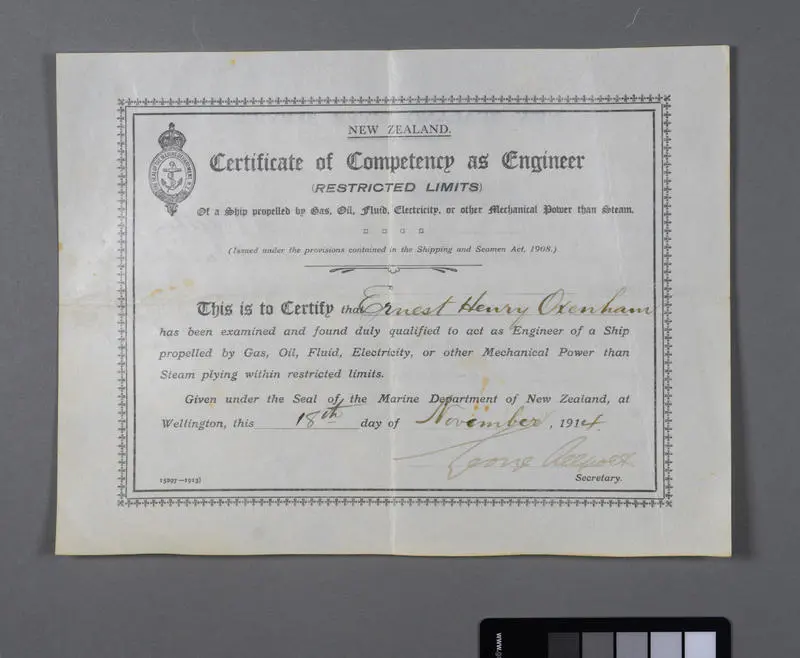 NEW ZEALAND.
Certificate of Competency as Engineer
(RESTRICTED LIMITS)
Of a Ship propelled by Gas, Oil, Fluid, Electricity, or other Mechanical Power than Steam.
(Issued under the provisions contained in the Shipping and Seamen Act, 1908.)
This is to Certify that Ernest Henry Oxenham
has been examined and found duly qualified to act as Engineer of a Ship
propelled by Gas, Oil, Fluid, Electricity, or other Mechanical Power than
Steam plying within restricted limits.
Given under the Seal of the Marine Department of New Zealand, at
Wellington, this 18th day of November, 1914.
George Allport
Secretary.
15297—1913)
www.